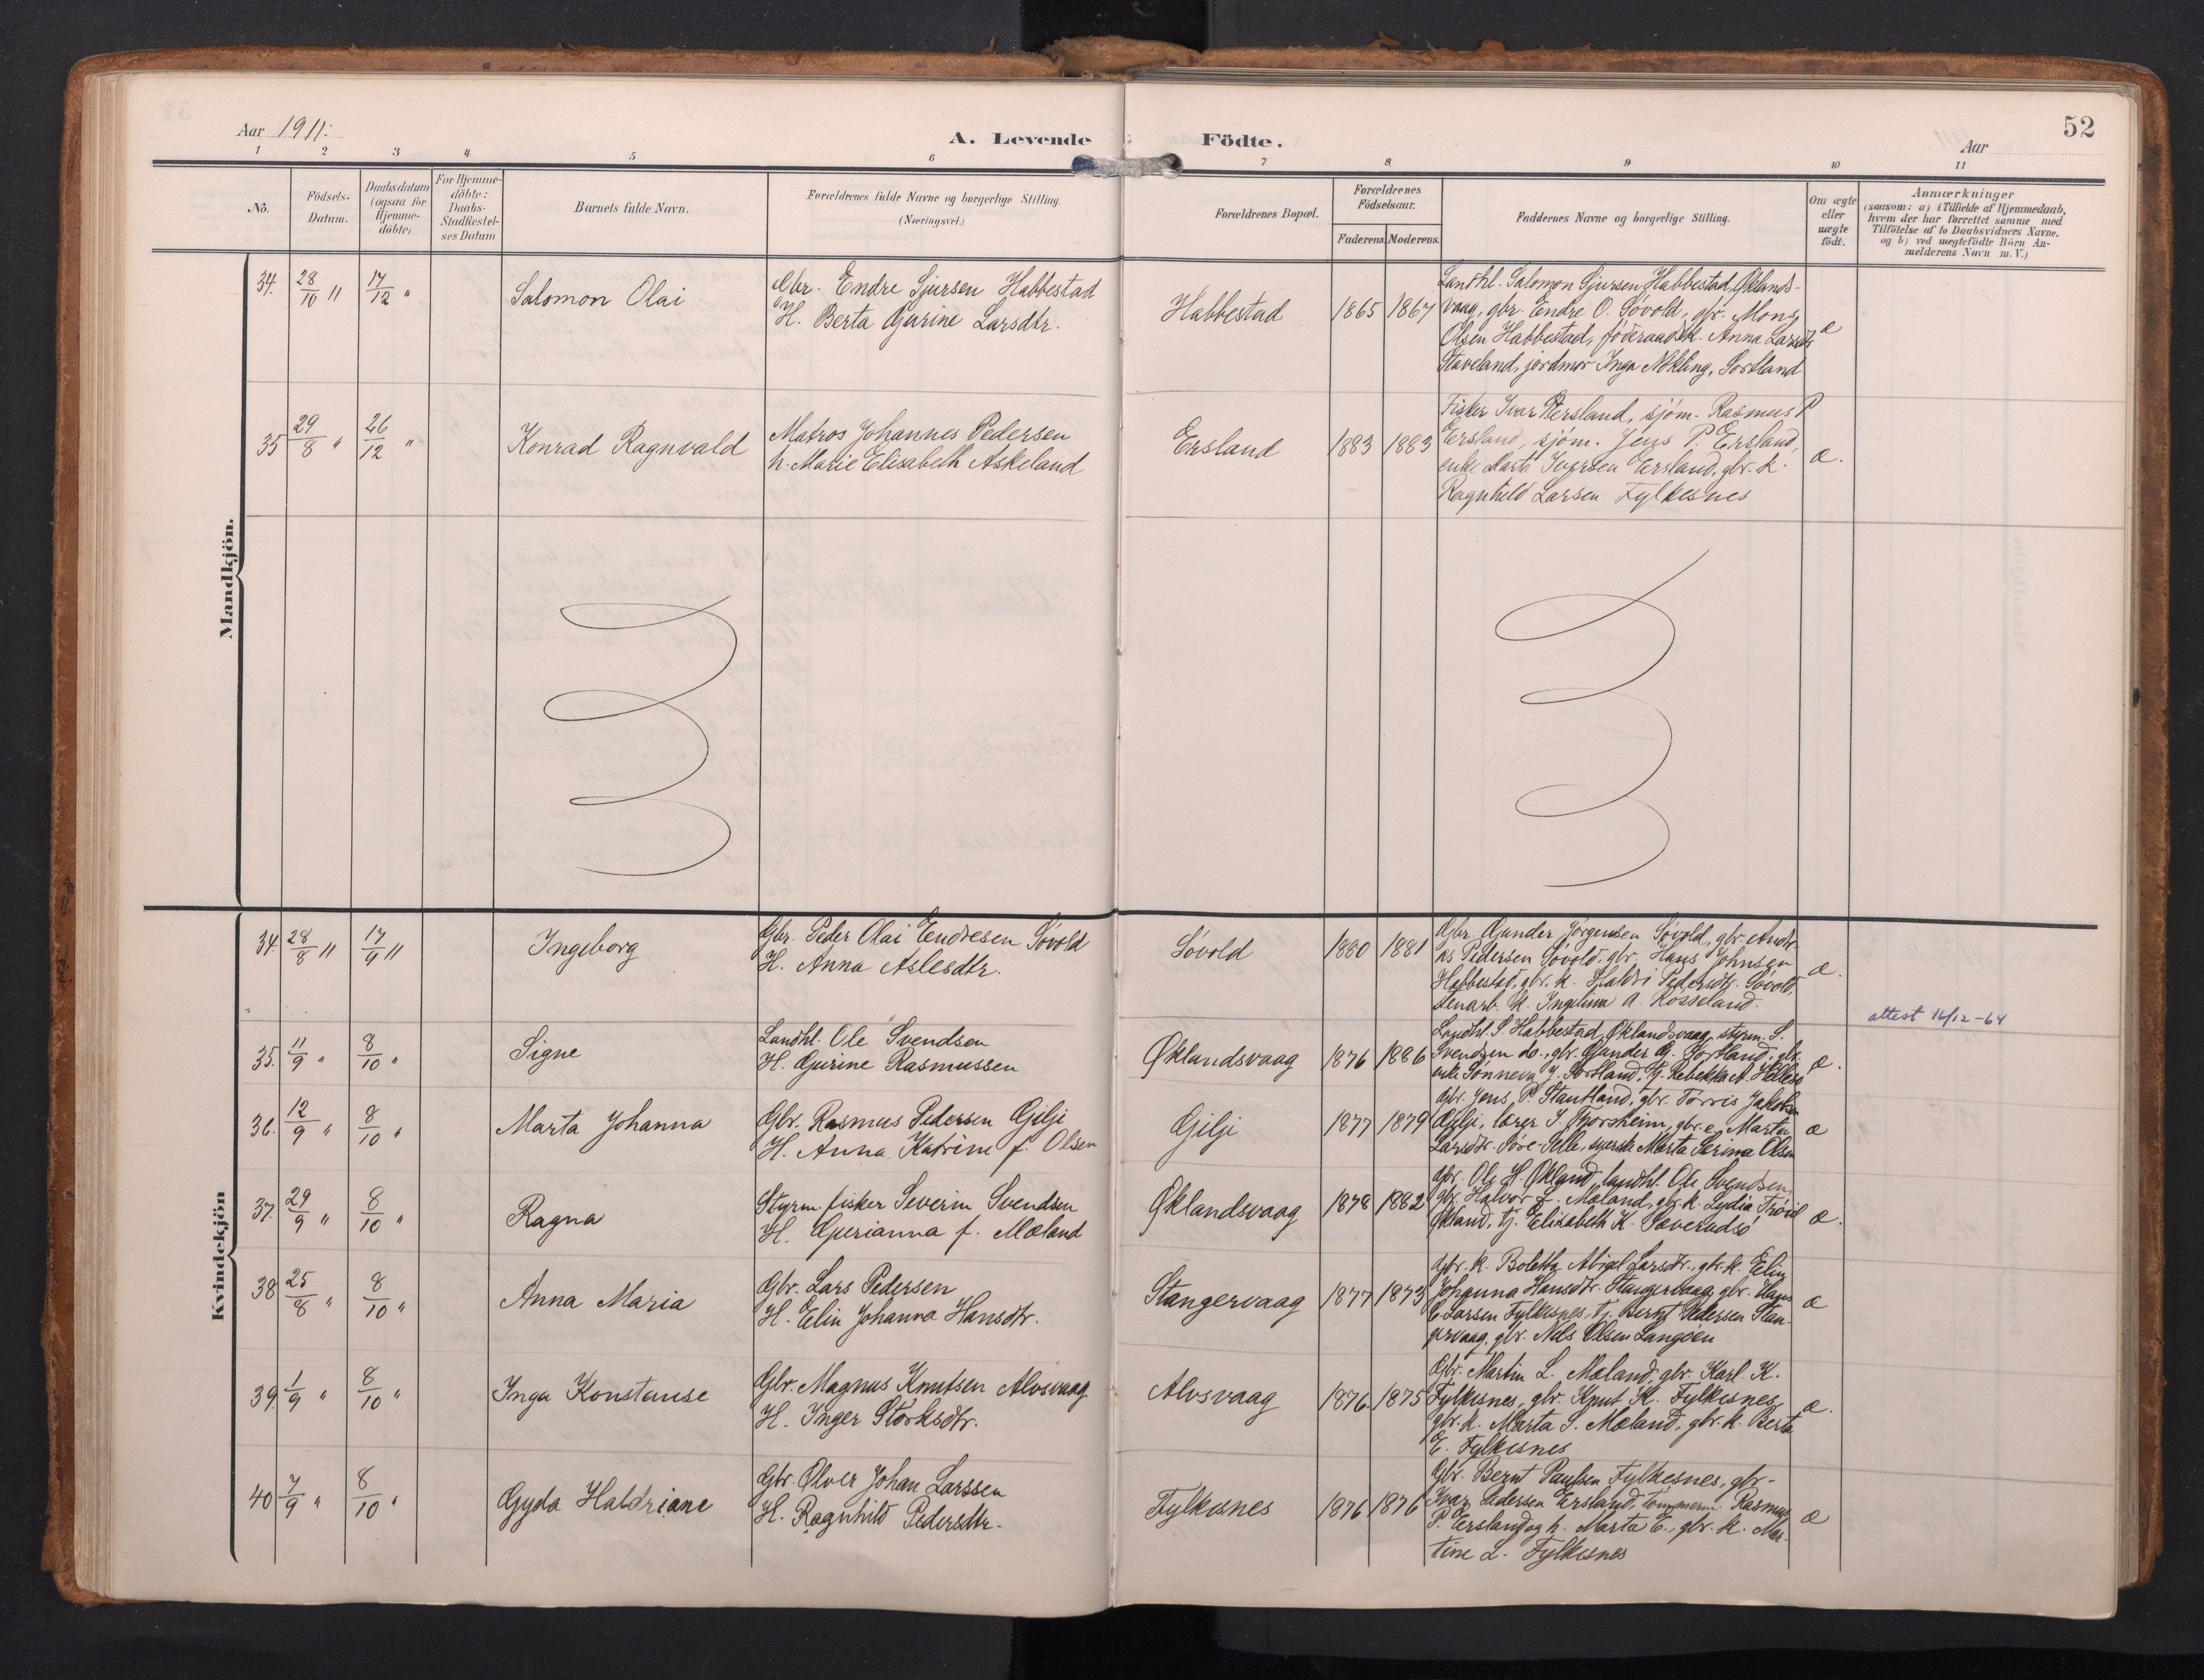 52
Aar 1911.
A. Levende Födte.
Aar
1 2 3 4 5 6 7 8 9 10 11
No.
Födsels-
Datum.
Daabsdatum
(ogsaa for
Hjemme-
döbte)
For Hjemme-
döbte:
Daabs-
Stadfæstel-
ses Datum
Barnets fulde Navn.
Forældrenes fulde Navne og borgerlige Stilling.
(Næringsvei.)
Forældrenes Bopæl.
Forældrenes
Födselsaar.
Faderens. Moderens.
Faddernes Navne og borgerlige Stilling.
Om ægte
eller
uægte
födt.
Anmærkninger
(saasom: a) i Tilfælde af Hjemmedaab,
hvem der har forrettet samme med
Tilföielse af to Daabsvidners Navne.
og b) ved uægtefödte Börn An-
melderens Navn m. V.)
Mandkjön.
34. 28/10 " 17/12 "
Salomon Olai
Gbr. Endre Sjursen Habbestad
H. Berta Gurine Larsdtr.
Habbestad
1865 1867
Landhl. Salomon Sjursen Habbestad, Øklands-
vaag, gbr. Endre O. Søvold, gbr. Mons
Olsen Habbestad, føderaadsk. Anna Larsdtr
Staveland, jordmor Inga Nøkling, Sortland
æ
35 29/8 " 26/12 "
Konrad Ragnvald
Matros Johannes Pedersen
h. Marie Elisabeth Askeland
Ersland
1883 1883
Fisker Ivar Ersland, sjøm. Rasmus P
Ersland, sjøm. Jens P. Ersland,
enke Marta Iversen Ersland, gbr. k.
Ragnhild Larsen Fylkesnes
æ.
Kvindekjön
34. 28/8 " 17/9 "
Ingeborg
Gbr. Peder Olai Endresen Søvold
H. Anna Aslesdtr.
Søvold
1880 1881
Gbr. Gunder Jørgensen Søvold, gbr. Andr-
as Pedersen Søvold, gbr. Hans Johnsen
Habbestad, gbr. k. Haldri Pedersdtr. Søvold,
stenarb. k. Ingelina A. Rosseland.
æ.
35. 11/9 " 8/10 "
Signe
Landhl. Ole Svendsen
H. Gurine Rasmussen
Øklandsvaag
1876 1886
Landhl. S. Habbestad, Øklandsvaag, styrm. S.
Svendsen do., gbr. Gunder G. Sortland, gbr.
enke Sønneva J. Sortland, tj. Rebekka A. Hellesø
æ.
attest 16/12-64
36. 12/9 " 8/10 "
Marta Johanna
Gbr. Rasmus Pedersen Gilje
H. Anna Katrine f. Olsen
Gilje
1877 1879
Gbr. Jens P. Stautland, gbr. Torris Jakobsen
Gilje, lærer S. Thorsheim, gbr. e. Marta
Larsdtr. Søre-Selle, syerske Marta Serina Olsen
æ
37. 29/9 " 8/10 "
Ragna
Styrm. fisker Severin Svendsen
H. Gurianna f. Mæland
Øklandsvaag
1878 1882
Gbr. Ole H. Økland, landhl. Ole Svendsen,
gbr. Halvor L. Mæland, gbr. k. Lydia Trovil
Økland, tj. Elisabeth K. Sæveradsø
æ.
38 25/8 " 8/10 "
Anna Maria
Gbr. Lars Pedersen
H. Elin Johanna Hansdtr.
Stangervaag
1877 1873
Gbr. k. Boletta Abigel Larsdtr., gbr. k. Elin
Johanna Hansdtr. Stangervaag, gbr. Hans
C. Larsen Fylkesnes, tj. Bernt Pedersen Stan-
gervaag, gbr. Nils Olsen Langøen
æ
39. 1/9 " 8/10 "
Inga Konstanse
Gbr. Magnus Knutsen Alvsvaag
H. Inger Storksdtr.
Alvsvaag
1876. 1875
Gbr. Martin L. Mæland, gbr. Karl K.
Fylkesnes, gbr. Knut K. Fylkesnes,
gbr. k. Marta S. Mæland, gbr. k. Berta
E. Fylkesnes
æ.
40 7/9 " 8/10 "
Gyda Haldriane
Gbr. Olver Johan Larssen
H. Ragnhild Pedersdtr.
Fylkesnes
1876 1876
Gbr. Bernt Paulsen Fylkesnes, gbr.
Ivar Pedersen Ersland, tømmerm. Rasmus
P. Ersland og h. Marta E., gbr. k. Mar-
tine L. Fylkesnes
æ